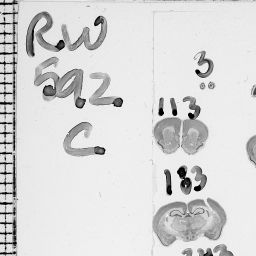 RW
592
C
3
113
183